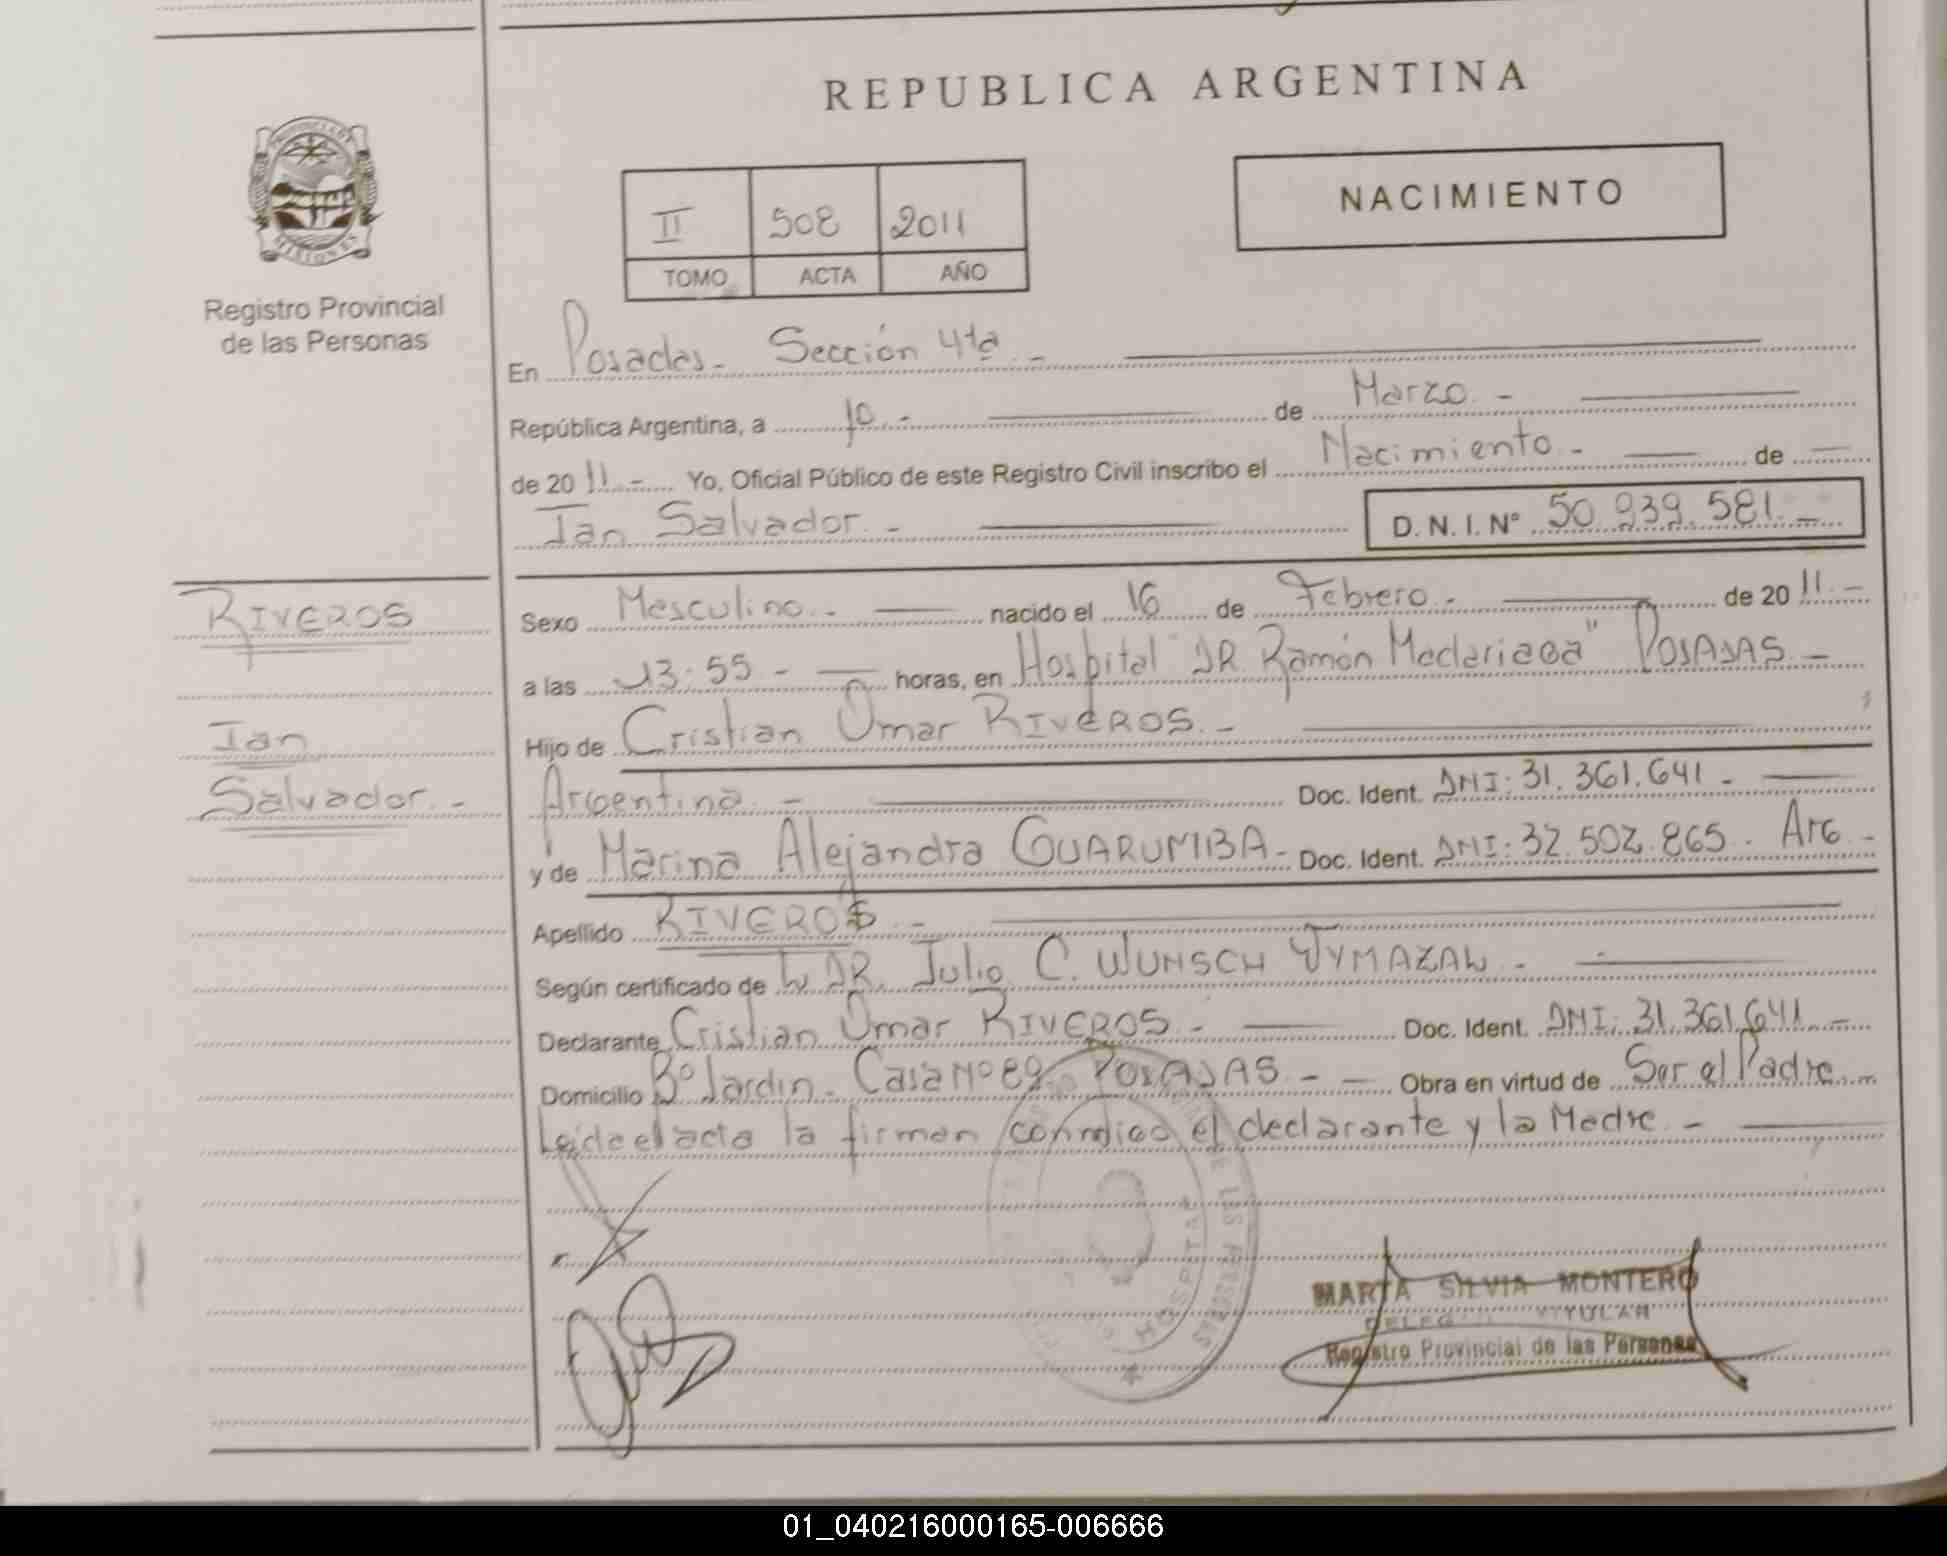 REPUBLICA ARGENTINA
PROVINCIA DE
MISIONES
Registro Provincial
de las Personas
II 508 2011
TOMO ACTA AÑO
NACIMIENTO
En Posadas - Sección 4ta -
República Argentina, a 10 - de Marzo. -
de 2011. - Yo, Oficial Público de este Registro Civil inscribo el Nacimiento - de
Ian Salvador. - D. N. I. Nº 50.939.581. -
RIVEROS
Ian
Salvador. -
Sexo Masculino. - nacido el 16 de Febrero. - de 2011. -
a las 13:55 - horas, en Hospital "DR. Ramón Madariaga" POSADAS. -
Hijo de Cristian Omar RIVEROS. -
Argentina. - Doc. Ident. DNI: 31.361.641 -
y de Marina Alejandra GUARUMBA - Doc. Ident. DNI: 32.502.865. Arg. -
Apellido RIVEROS -
Según certificado de DR. Julio C. WUNSCH -
Declarante Cristian Omar RIVEROS. - Doc. Ident. DNI: 31.361.641 -
Domicilio Bº Jardin - Casa Nº 89 - POSADAS. - Obra en virtud de Ser el Padre
Leida el acta la firman conmigo el declarante y la Madre. -
HOSPITAL
MARTA SILVIA MONTERO
DELEG TITULAR
Registro Provincial de las Personas
01_040216000165-006666